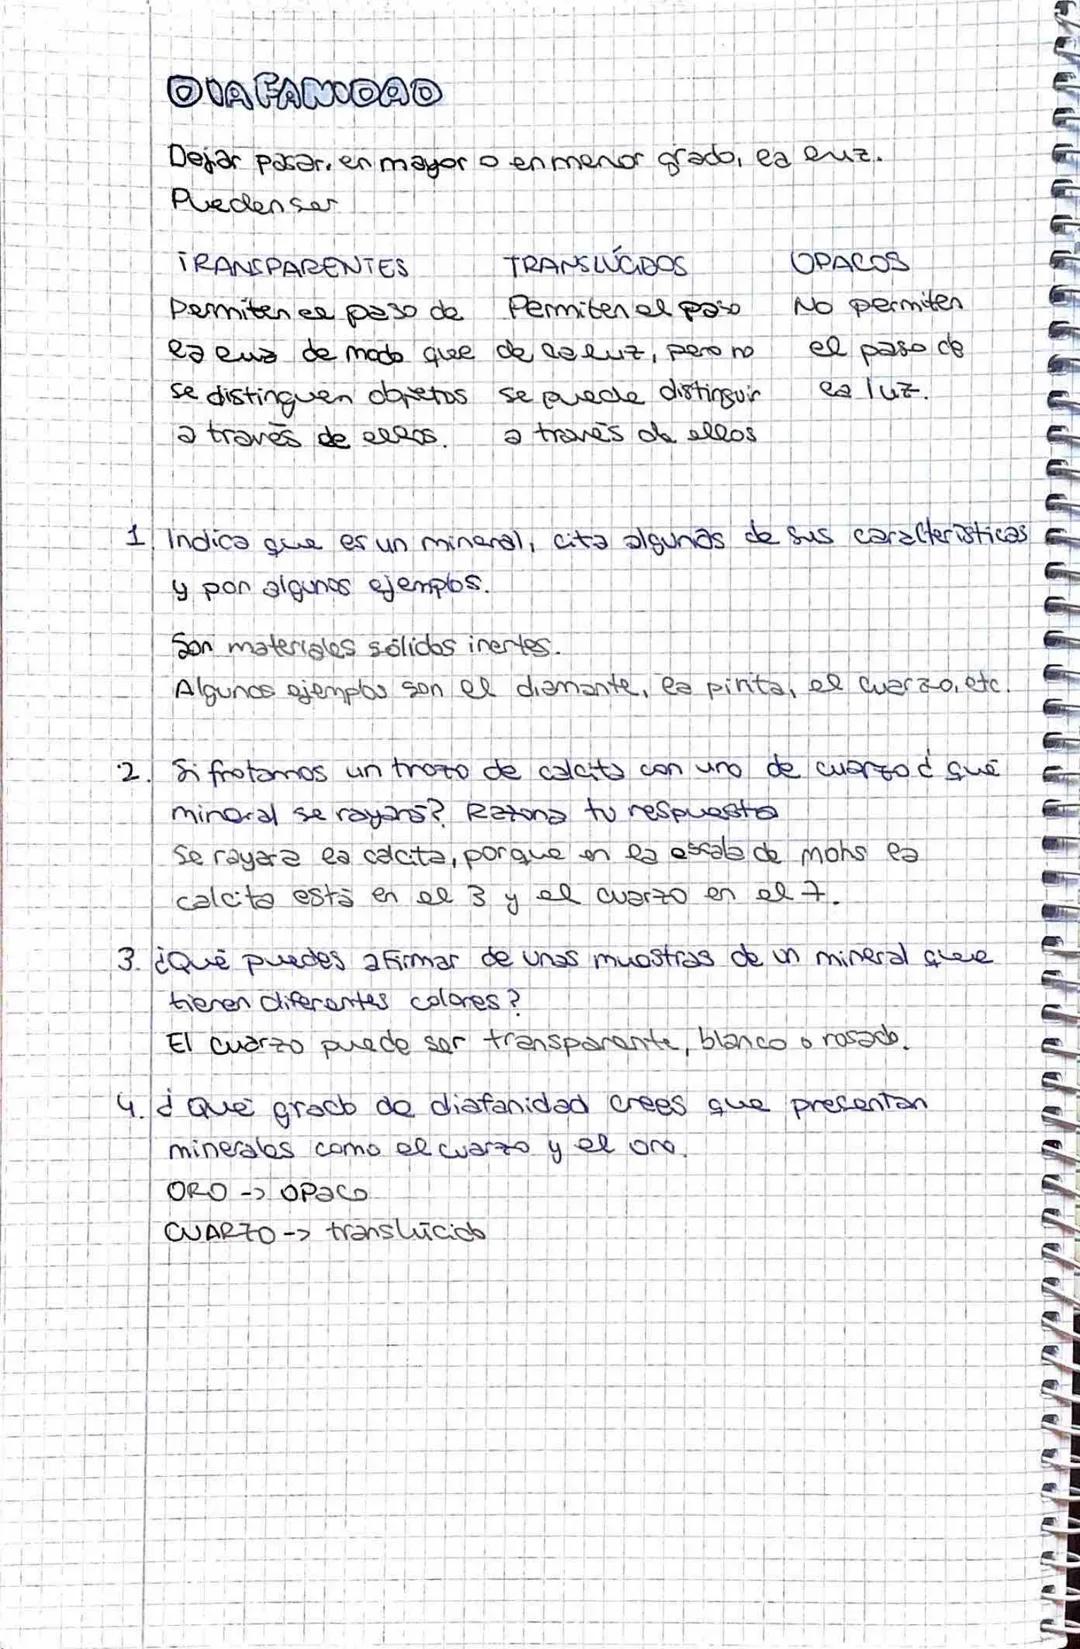 DIAFANIDAD
Dejar pasar, en mayor o en menor grado, la luz.
Pueden ser
TRANSPARENTES TRANSLÚCIDOS OPACOS
Permiten el paso de Permiten el paso No permiten
la luz de modo que de la luz, pero no el paso de
se distinguen objetos se puede distinguir la luz.
a través de ellos. a través de ellos
1. Indica que es un mineral, cita algunas de sus características
y pon algunos ejemplos.
Son materiales sólidos inertes.
Algunos ejemplos son el diamante, la pirita, el cuarzo, etc.
2. Si frotamos un trozo de calcita con uno de cuarzo ¿ qué
mineral se rayará? Razona tu respuesta
Se rayará la calcita, porque en la escala de mohs la
calcita está en el 3 y el cuarzo en el 7.
3. ¿Qué puedes afirmar de unas muestras de un mineral que
tienen diferentes colores?
El cuarzo puede ser transparente, blanco o rosado.
4. ¿ Qué grado de diafanidad crees que presentan
minerales como el cuarzo y el oro.
ORO -> OPaco
CUARZO -> translúcido